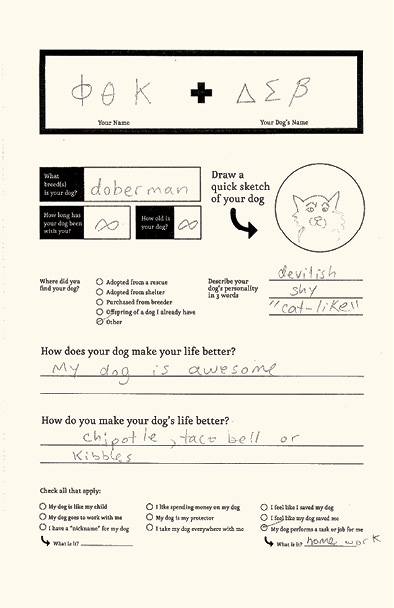 Φ Θ Κ + Δ Σ β
Your Name Your Dog's Name
What breed(s) is your dog? doberman
How long has your dog been with you? ∞ How old is your dog? ∞
Draw a quick sketch of your dog
Where did you find your dog?
Adopted from a rescue
Adopted from shelter
Purchased from breeder
Offspring of a dog I already have
Other
Describe your dog's personality in 3 words
devilish
shy
"cat-like"
How does your dog make your life better?
My dog is awesome
How do you make your dog's life better?
chipotle, taco bell or
Kibbles
Check all that apply:
My dog is like my child
My dog goes to work with me
I have a "nickname" for my dog
What is it?
I like spending money on my dog
My dog is my protector
I take my dog everywhere with me
I feel like I saved my dog
I feel like my dog saved me
My dog performs a task or job for me
What is it? home work